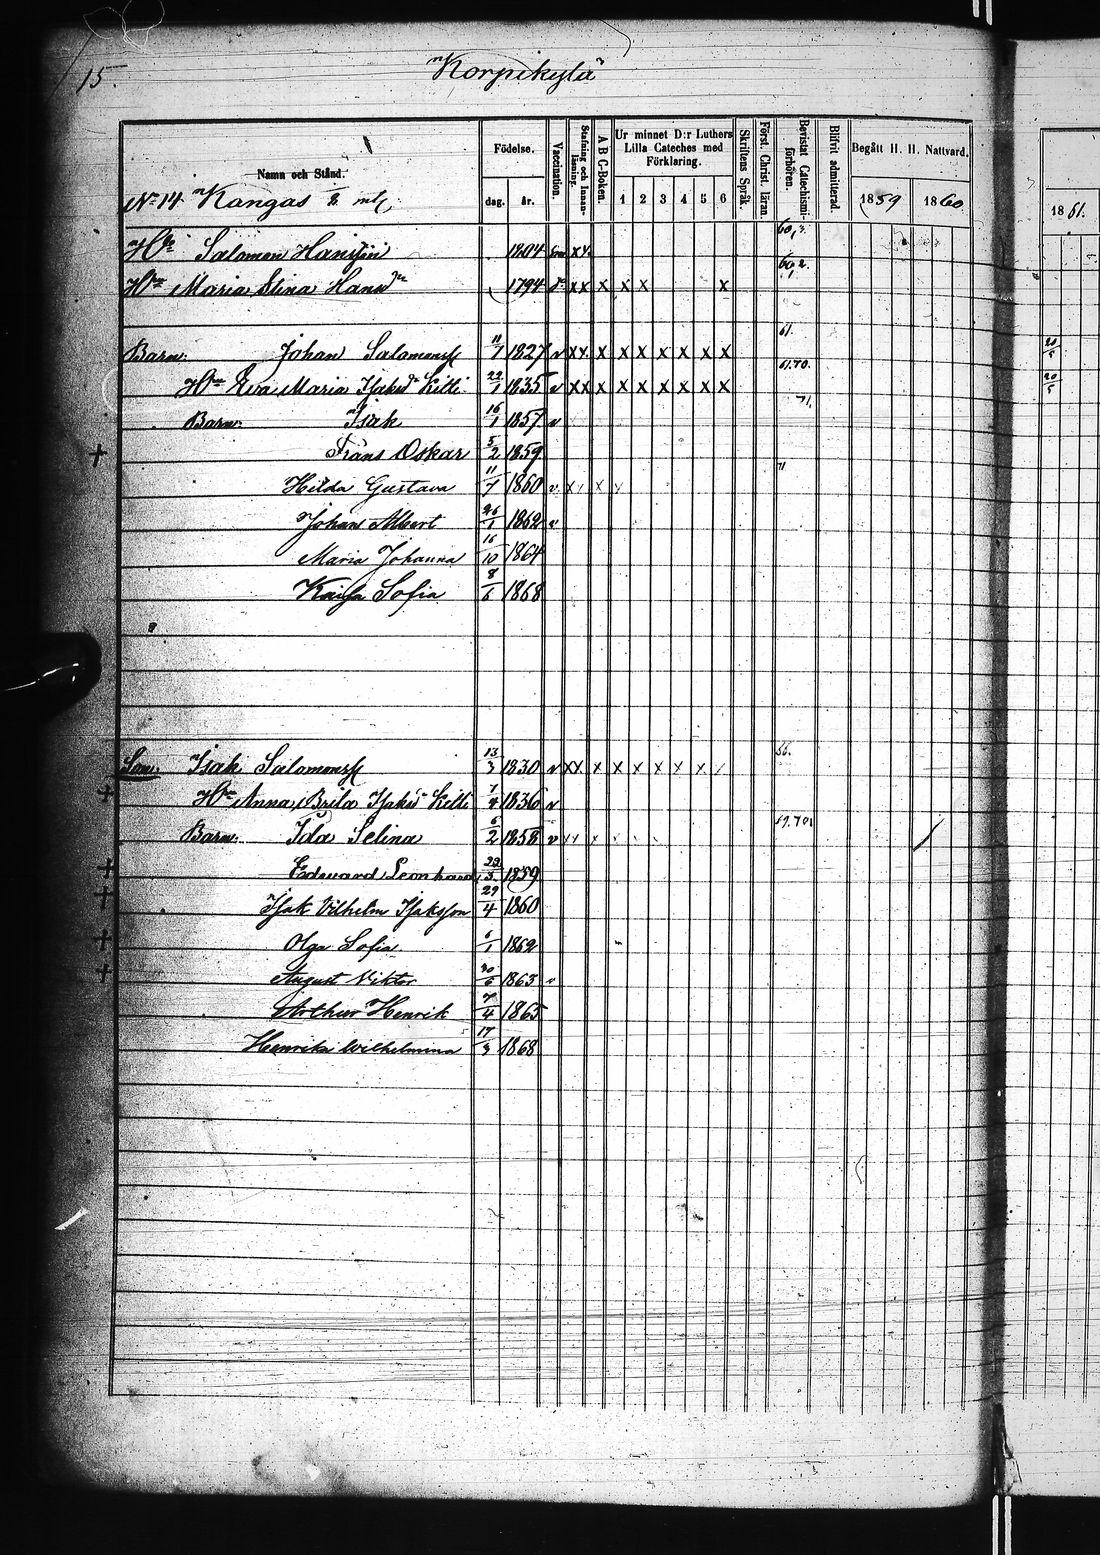 15.
Korpikylä
Namn och Stånd.
Födelse.
dag. år.
Vaccination.
Stafning och Innanläsning.
A B C-Boken.
Ur minnet D:r Luthers Lilla Cateches med Förklaring.
1 2 3 4 5 6
Skriftens Språk.
Först. Christ. läran.
Bevistat Catechismiförhören.
Blifvit admitterad.
Begått H. H. Nattvard.
1859 1860
1861.
No 14 Kangas
Salomon Hansson 1804 x x 60,
Hu Maria Stina Hansdr 1794 x x x x x x 60, 2.
Barn: Johan Salomonss 11/1 1827 v x x x x x x x x x 61. 20/5
Hu Eva Maria Isaksd Kitti 22/1 1835 v x x x x x x x x x 61.70. 20/5
Barn: Isak 16/1 1857 v 71,
+ Frans Oskar 5/2 1859
Hilda Gustava 11/7 1860 v x x x 71
Johan Albert 26/1 1862 v
Maria Johanna 16/10 1864
Kaisa Sofia 8/6 1868
Son: Isak Salomonss 13/3 1830 v x x x x x x x x
+ Hu Anna Brita Isaksd Kitti 1/4 1836 v
Barn: Ida Selina 6/2 1858 v
+ Edouard Leonhard 1859
+ Isak Vilhelm Isaksson 29/4 1860
+ Olga Sofia 6/1 1862
+ August Viktor 30/6 1863 v
Arthur Henrik 7/4 1865
Henrika Wilhelmina 17/3 1868